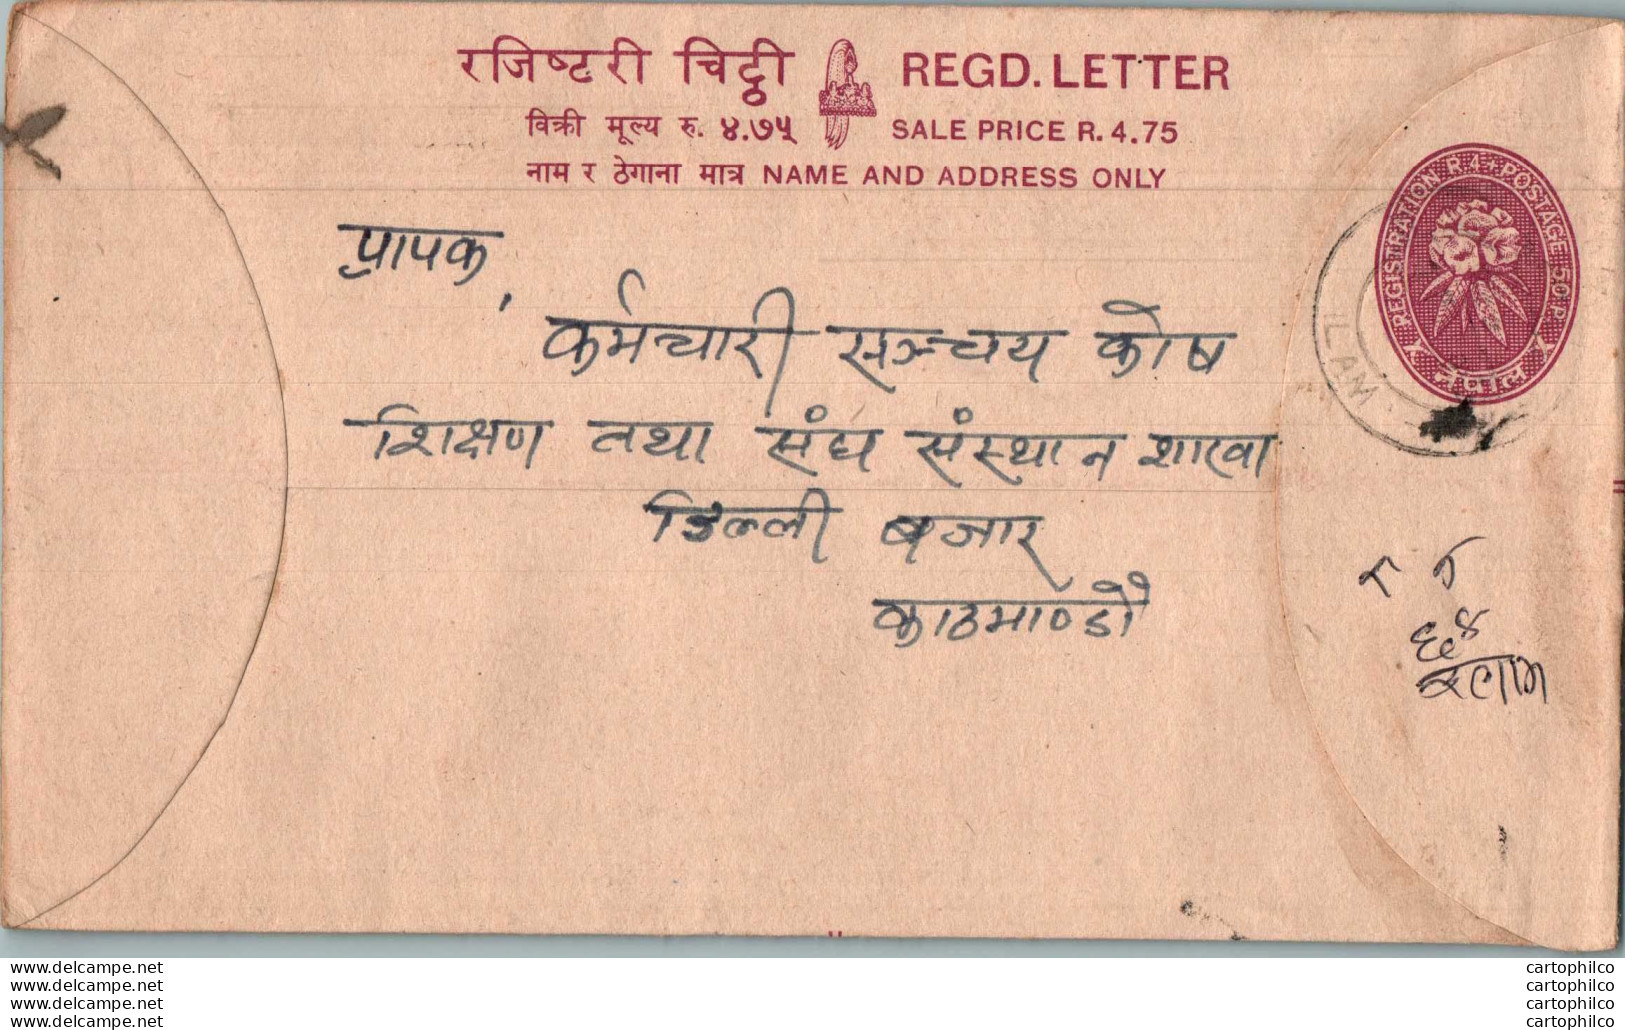 रजिष्टरी चिट्ठी REGD. LETTER
विक्री मूल्य रु. ४.७५ SALE PRICE R. 4.75
नाम र ठेगाना मात्र NAME AND ADDRESS ONLY
REGISTRATION R 4 + POSTAGE 50 P.
नेपाल
ILAM
प्रापक,
कर्मचारी सञ्चय कोष
शिक्षण तथा संघ संस्थान शाखा
डिल्ली बजार
काठमाण्डौ
इलाम
www.delcampe.net
www.delcampe.net
www.delcampe.net
www.delcampe.net
cartophilco
cartophilco
cartophilco
cartophilco